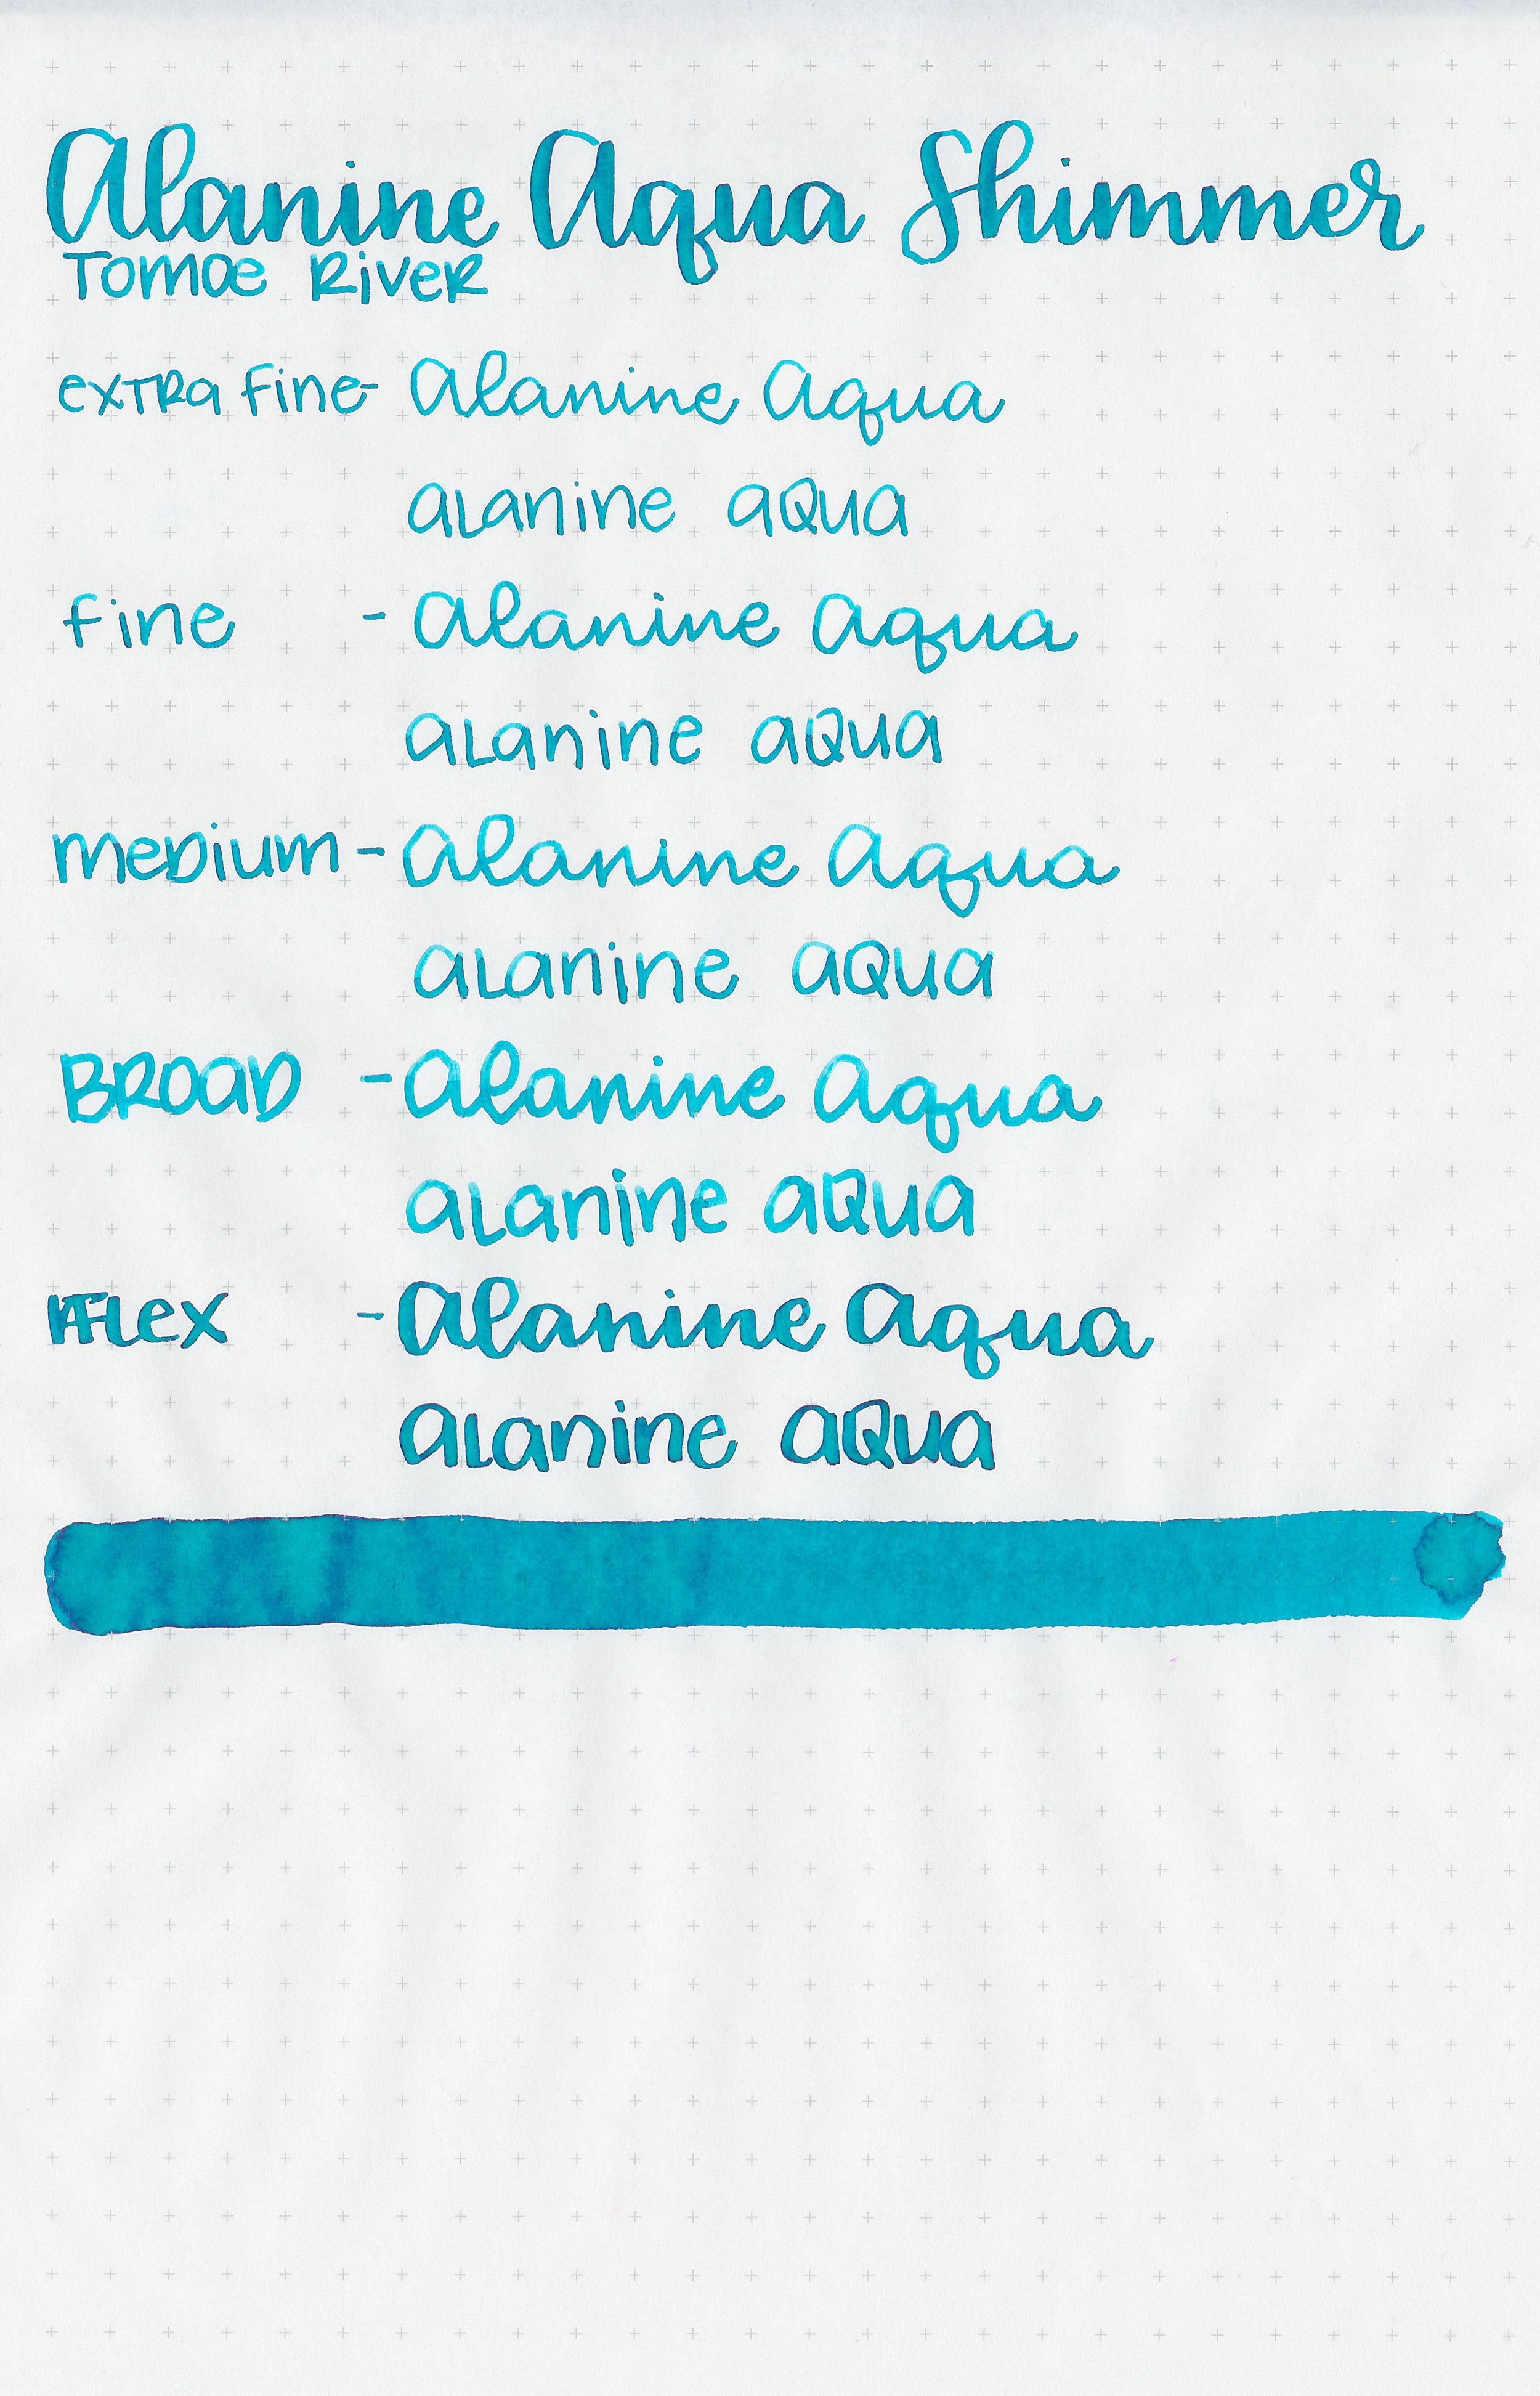 Alanine Aqua Shimmer
Tomoe River
extra fine - Alanine Aqua
alanine aqua
fine - Alanine Aqua
alanine aqua
medium - Alanine Aqua
alanine aqua
BROAD - Alanine Aqua
alanine aqua
Flex - Alanine Aqua
alanine aqua